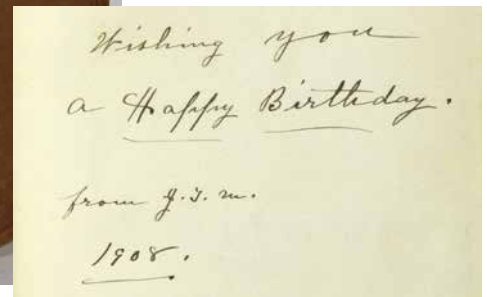 Wishing you
a Happy Birthday.
from J.J.M.
1908.